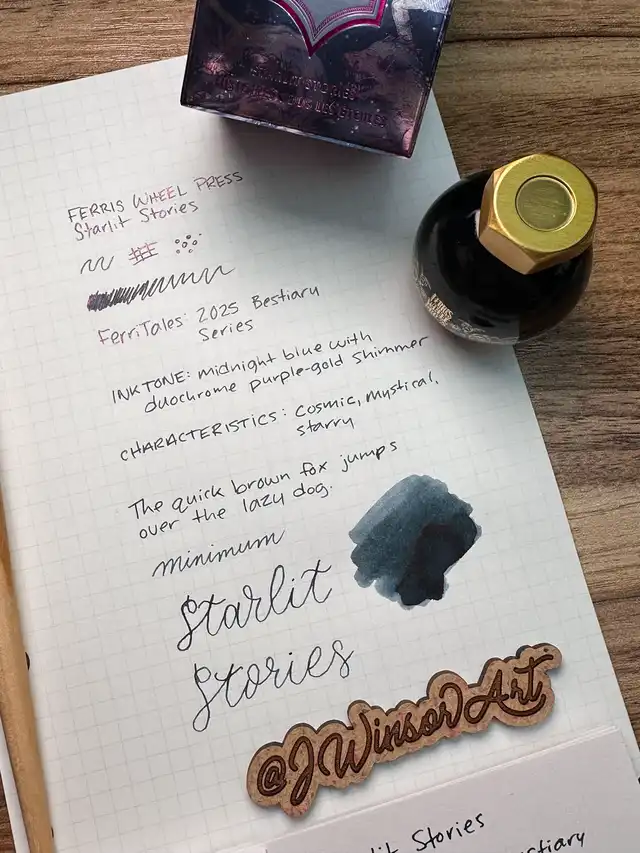 STARLIT STORIES
FERRIS WHEEL PRESS
Starlit Stories
FerriTales: 2025 Bestiary
Series
INK TONE: midnight blue with
duochrome purple-gold shimmer
CHARACTERISTICS: Cosmic, mystical,
starry
The quick brown fox jumps
over the lazy dog.
minimum
Starlit
Stories
@JWinsorArt
Stories